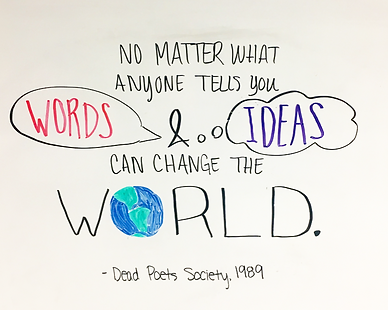 NO MATTER WHAT
ANYONE TELLS YOU
WORDS & IDEAS
CAN CHANGE THE
WORLD.
- Dead Poets Society, 1989